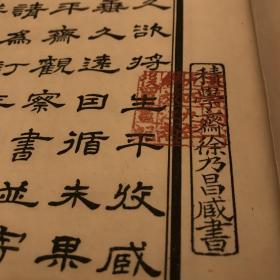 積學齋徐乃昌藏書
之欲將生平收藏
垂久遠因循未果
平齋觀察書並
請為訂